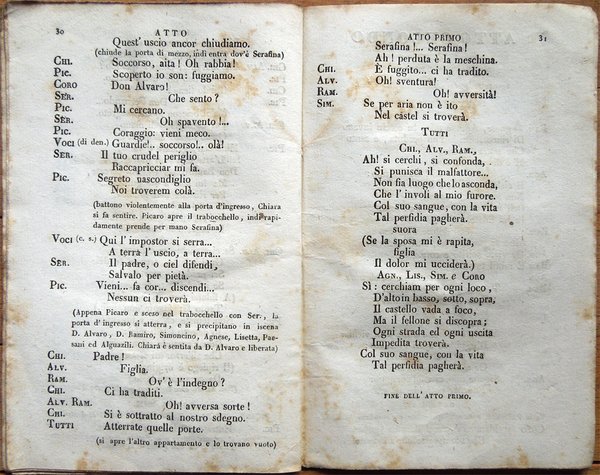 30 ATTO
Quest' uscio ancor chiudiamo.
(chiude la porta di mezzo, indi entra dov'è Serafina)
CHI. Soccorso, aita! Oh rabbia!
PIC. Scoperto io son: fuggiamo.
CORO Don Alvaro!
SER. Che sento?
PIC. Mi cercano.
SER. Oh spavento!..
PIC. Coraggio: vieni meco.
VOCI (di den.) Guardie!.. soccorso!.. olà!
SER. Il tuo crudel periglio
Raccapricciar mi fa.
PIC. Segreto nascondiglio
Noi troverem colà.
(battono violentemente alla porta d'ingresso, Chiara
si fa sentire. Picaro apre il trabocchello, indi rapi-
damente prende per mano Serafina)
VOCI (c. s.) Qui l' impostor si serra...
A terra l' uscio, a terra...
SER. Il padre, o ciel difendi,
Salvalo per pietà.
PIC. Vieni... fa cor... discendi...
Nessun ci troverà.
(Appena Picaro e sceso nel trabocchello con Ser., la
porta d' ingresso si atterra, e si precipitano in iscena
D. Alvaro, D. Ramiro, Simoncino, Agnese, Lisetta, Pae-
sani ed Alguazili. Chiara è sentita da D. Alvaro e liberata)
CHI. Padre!
ALV. Figlia.
RAM. Ov' è l' indegno?
CHI. Ci ha traditi.
ALV. RAM. Oh! avversa sorte!
CHI. Si è sottratto al nostro sdegno.
TUTTI Atterrate quelle porte.
(si apre l'altro appartamento e lo trovano vuoto)
ATTO PRIMO 31
Serafina!... Serafina!
Ah! perduta è la meschina.
CHI. È fuggito... ci ha tradito.
ALV. Oh! sventura!
RAM. Oh! avversità!
SIM. Se per aria non è ito
Nel castel si troverà.
TUTTI
CHI., ALV., RAM.,
Ah! si cerchi, si confonda,
Si punisca il malfattore...
Non fia luogo che lo asconda,
Che l' involi al mio furore.
Col suo sangue, con la vita
Tal perfidia pagherà.
suora
(Se la sposa mi è rapita,
figlia
Il dolor mi ucciderà.)
AGN., LIS., SIM. e CORO
Sì: cerchiam per ogni loco,
D'alto in basso, sotto, sopra,
Il castello vada a foco,
Ma il fellone si discopra;
Ogni strada ed ogni uscita
Impedita troverà.
Col suo sangue, con la vita
Tal perfidia pagherà.
FINE DELL' ATTO PRIMO.